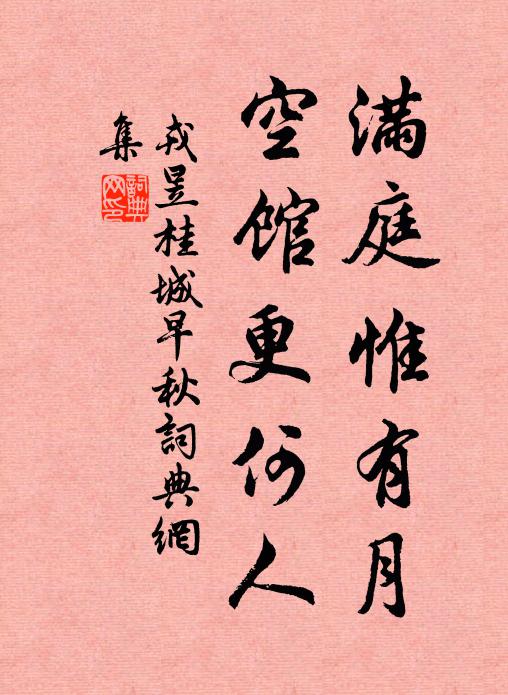 滿庭惟有月
空館更何人
戎昱桂城早秋詞典網
集
詞典
网印